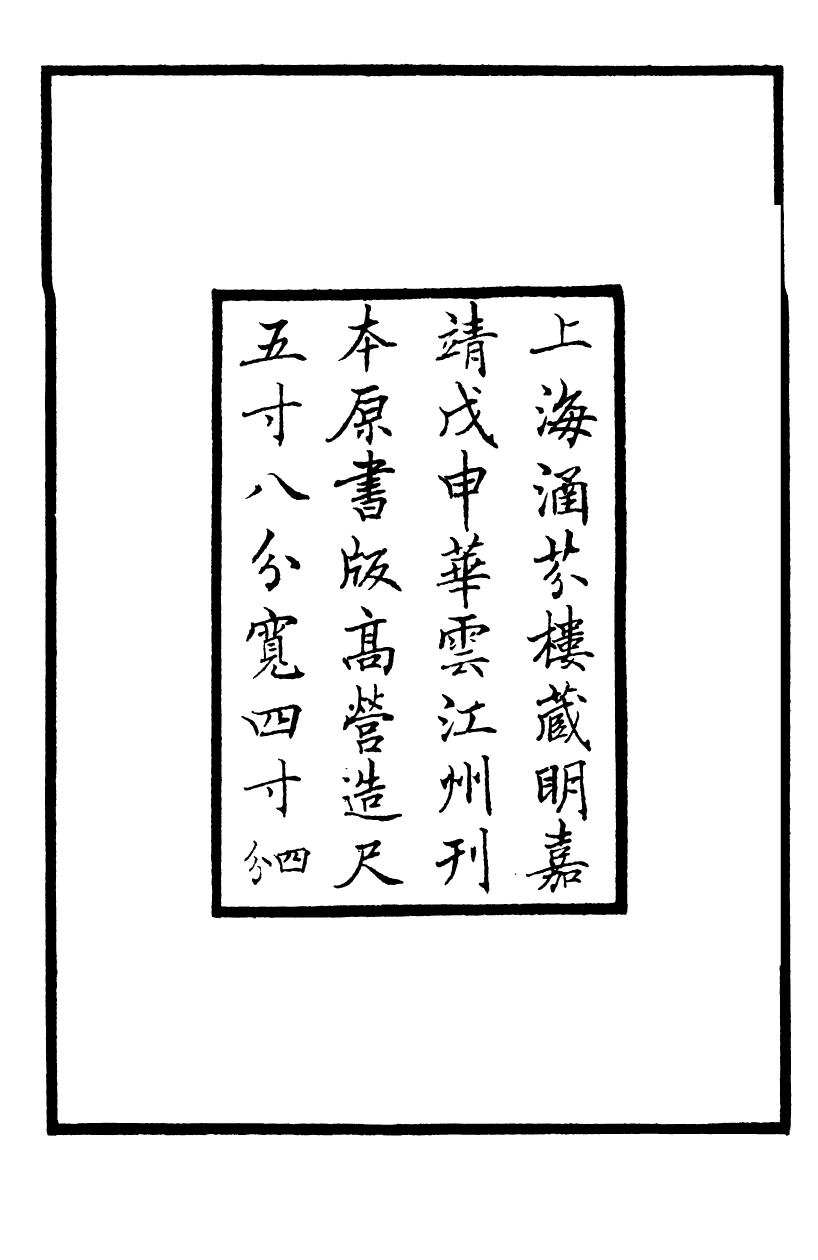 上海涵芬樓藏明嘉
靖戊申華雲江州刊
本原書版高營造尺
五寸八分寬四寸四分